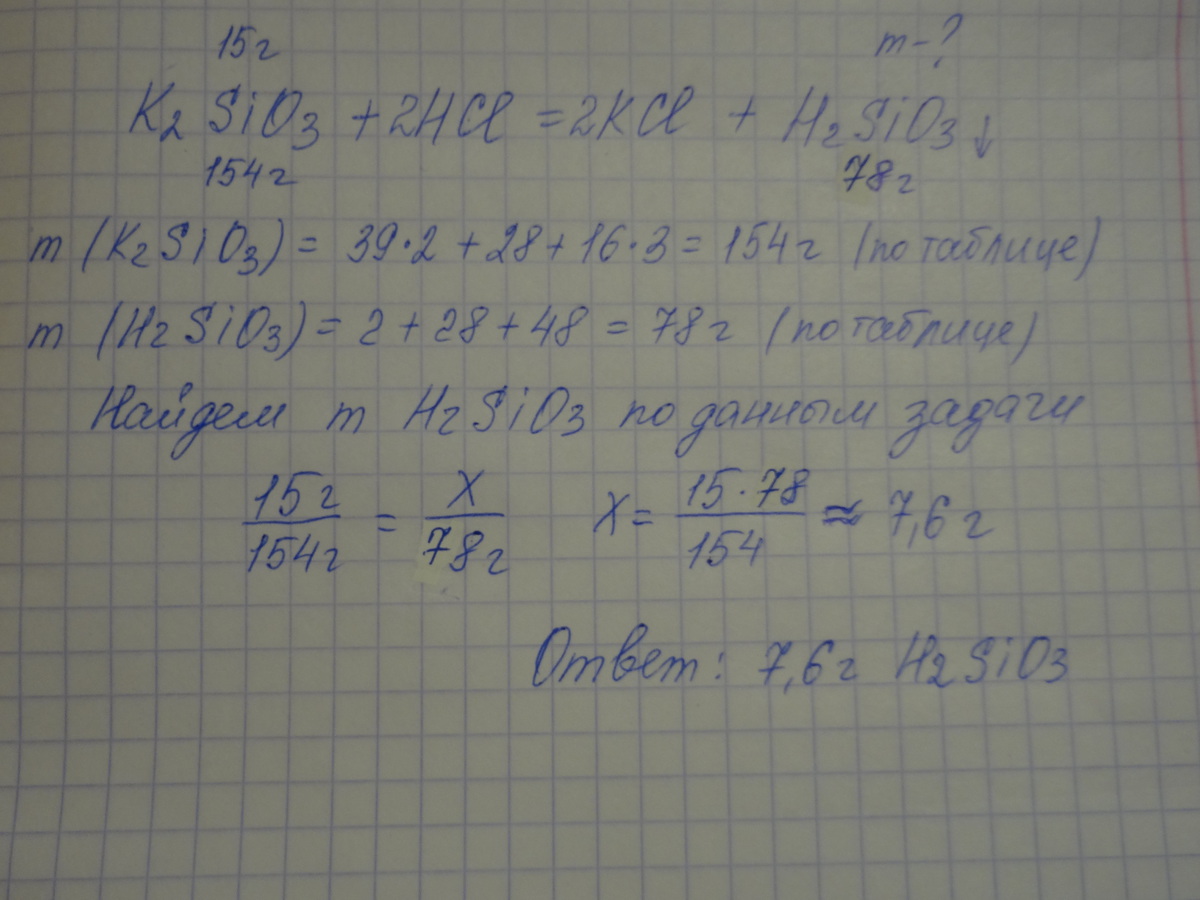 15г m-?
K2SiO3 + 2HCl = 2KCl + H2SiO3↓
154г 78г
m (K2SiO3) = 39·2 + 28 + 16·3 = 154г (по таблице)
m (H2SiO3) = 2 + 28 + 48 = 78г (по таблице)
Найдем m H2SiO3 по данным задачи
15г/154г = X/78г X = 15·78/154 ≈ 7,6г
Ответ: 7,6г H2SiO3